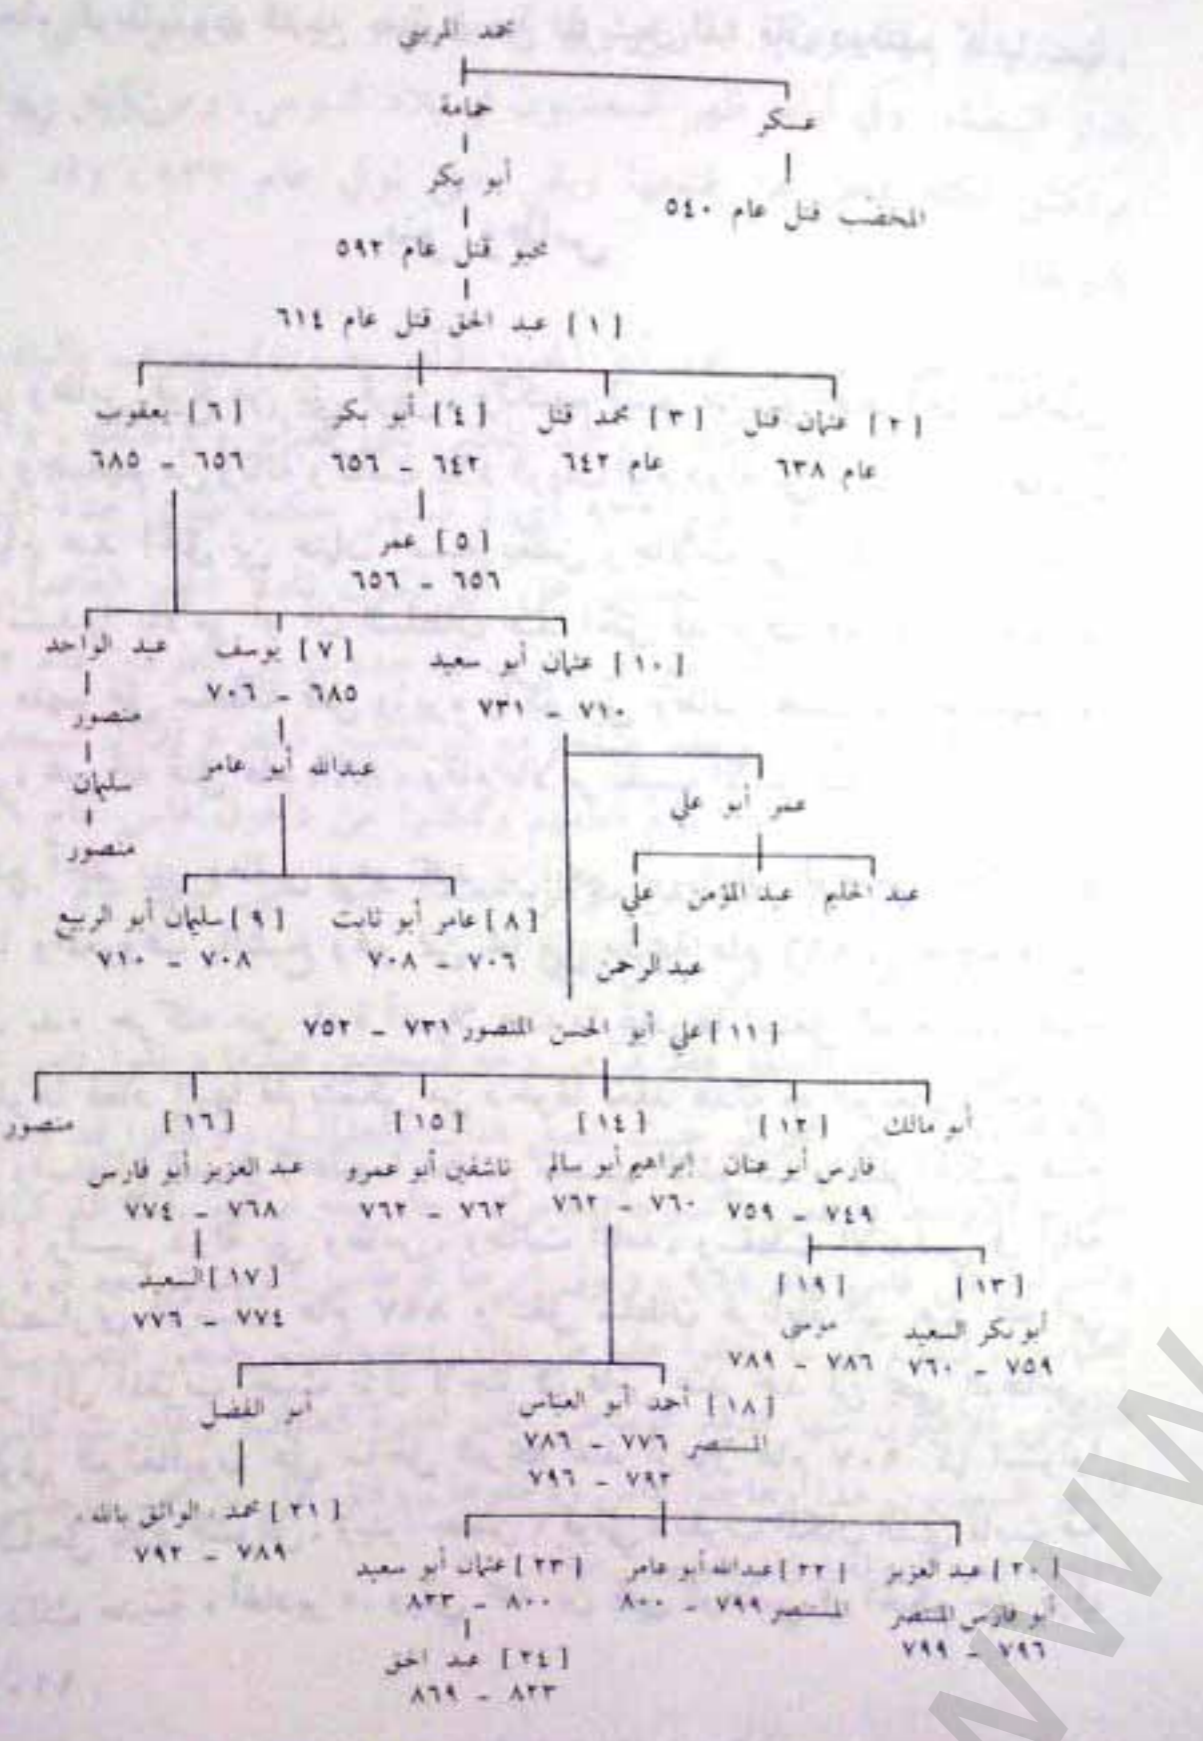 محمد المريني
حمامة
عسكر
أبو بكر
المخضب قتل عام ٥٤٠
محيو قتل عام ٥٩٢
[ ١ ] عبد الحق قتل عام ٦١٤
[ ٢ ] عثمان قتل
عام ٦٣٨
[ ٣ ] محمد قتل
عام ٦٤٢
[ ٤ ] أبو بكر
٦٤٢ - ٦٥٦
[ ٦ ] يعقوب
٦٥٦ - ٦٨٥
[ ٥ ] عمر
٦٥٦ - ٦٥٦
[ ١٠ ] عثمان أبو سعيد
٧١٠ - ٧٣١
[ ٧ ] يوسف
٦٨٥ - ٧٠٦
عبد الواحد
منصور
سليمان
منصور
عبدالله أبو عامر
عمر أبو علي
عبد الحليم
عبد المؤمن
علي
عبد الرحمن
[ ٨ ] عامر أبو ثابت
٧٠٦ - ٧٠٨
[ ٩ ] سليمان أبو الربيع
٧٠٨ - ٧١٠
[ ١١ ] علي أبو الحسن المنصور ٧٣١ - ٧٥٢
أبو مالك
[ ١٢ ]
فارس أبو عنان
٧٤٩ - ٧٥٩
[ ١٤ ]
إبراهيم أبو سالم
٧٦٠ - ٧٦٢
[ ١٥ ]
تاشفين أبو عمرو
٧٦٢ - ٧٦٢
[ ١٦ ]
عبد العزيز أبو فارس
٧٦٨ - ٧٧٤
منصور
[ ١٧ ] السعيد
٧٧٤ - ٧٧٦
[ ١٣ ]
أبو بكر السعيد
٧٥٩ - ٧٦٠
[ ١٩ ]
موسى
٧٨٦ - ٧٨٩
[ ١٨ ] أحمد أبو العباس
المستنصر ٧٧٦ - ٧٨٦
٧٩٢ - ٧٩٦
أبو الفضل
[ ٢١ ] محمد . الواثق بالله .
٧٨٩ - ٧٩٢
[ ٢٠ ] عبد العزيز
أبو فارس المنتصر
٧٩٦ - ٧٩٩
[ ٢٢ ] عبدالله أبو عامر
المستنصر ٧٩٩ - ٨٠٠
[ ٢٣ ] عثمان أبو سعيد
٨٠٠ - ٨٢٣
[ ٢٤ ] عبد الحق
٨٢٣ - ٨٦٩